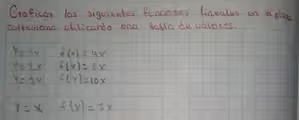 Graficar las siguientes funciones lineales en el plano
cartesiano utilizando una tabla de valores.
f(x) = 4x
f(x) = 10x
Y = x f(x) =